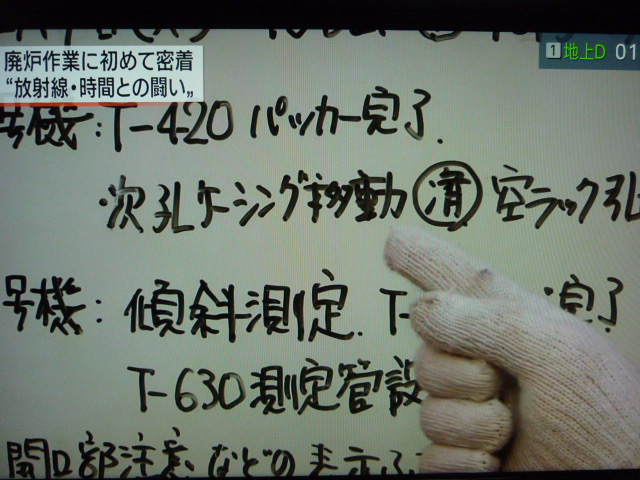 廃炉作業に初めて密着
“放射線・時間との闘い„
1 地上D 01
号機：T-420 パッカー完了.
・次孔ケーシング移動 済 空ラック孔
号機：傾斜測定. T- 完了
T-630測定管設
開口部注意 などの表示ふ